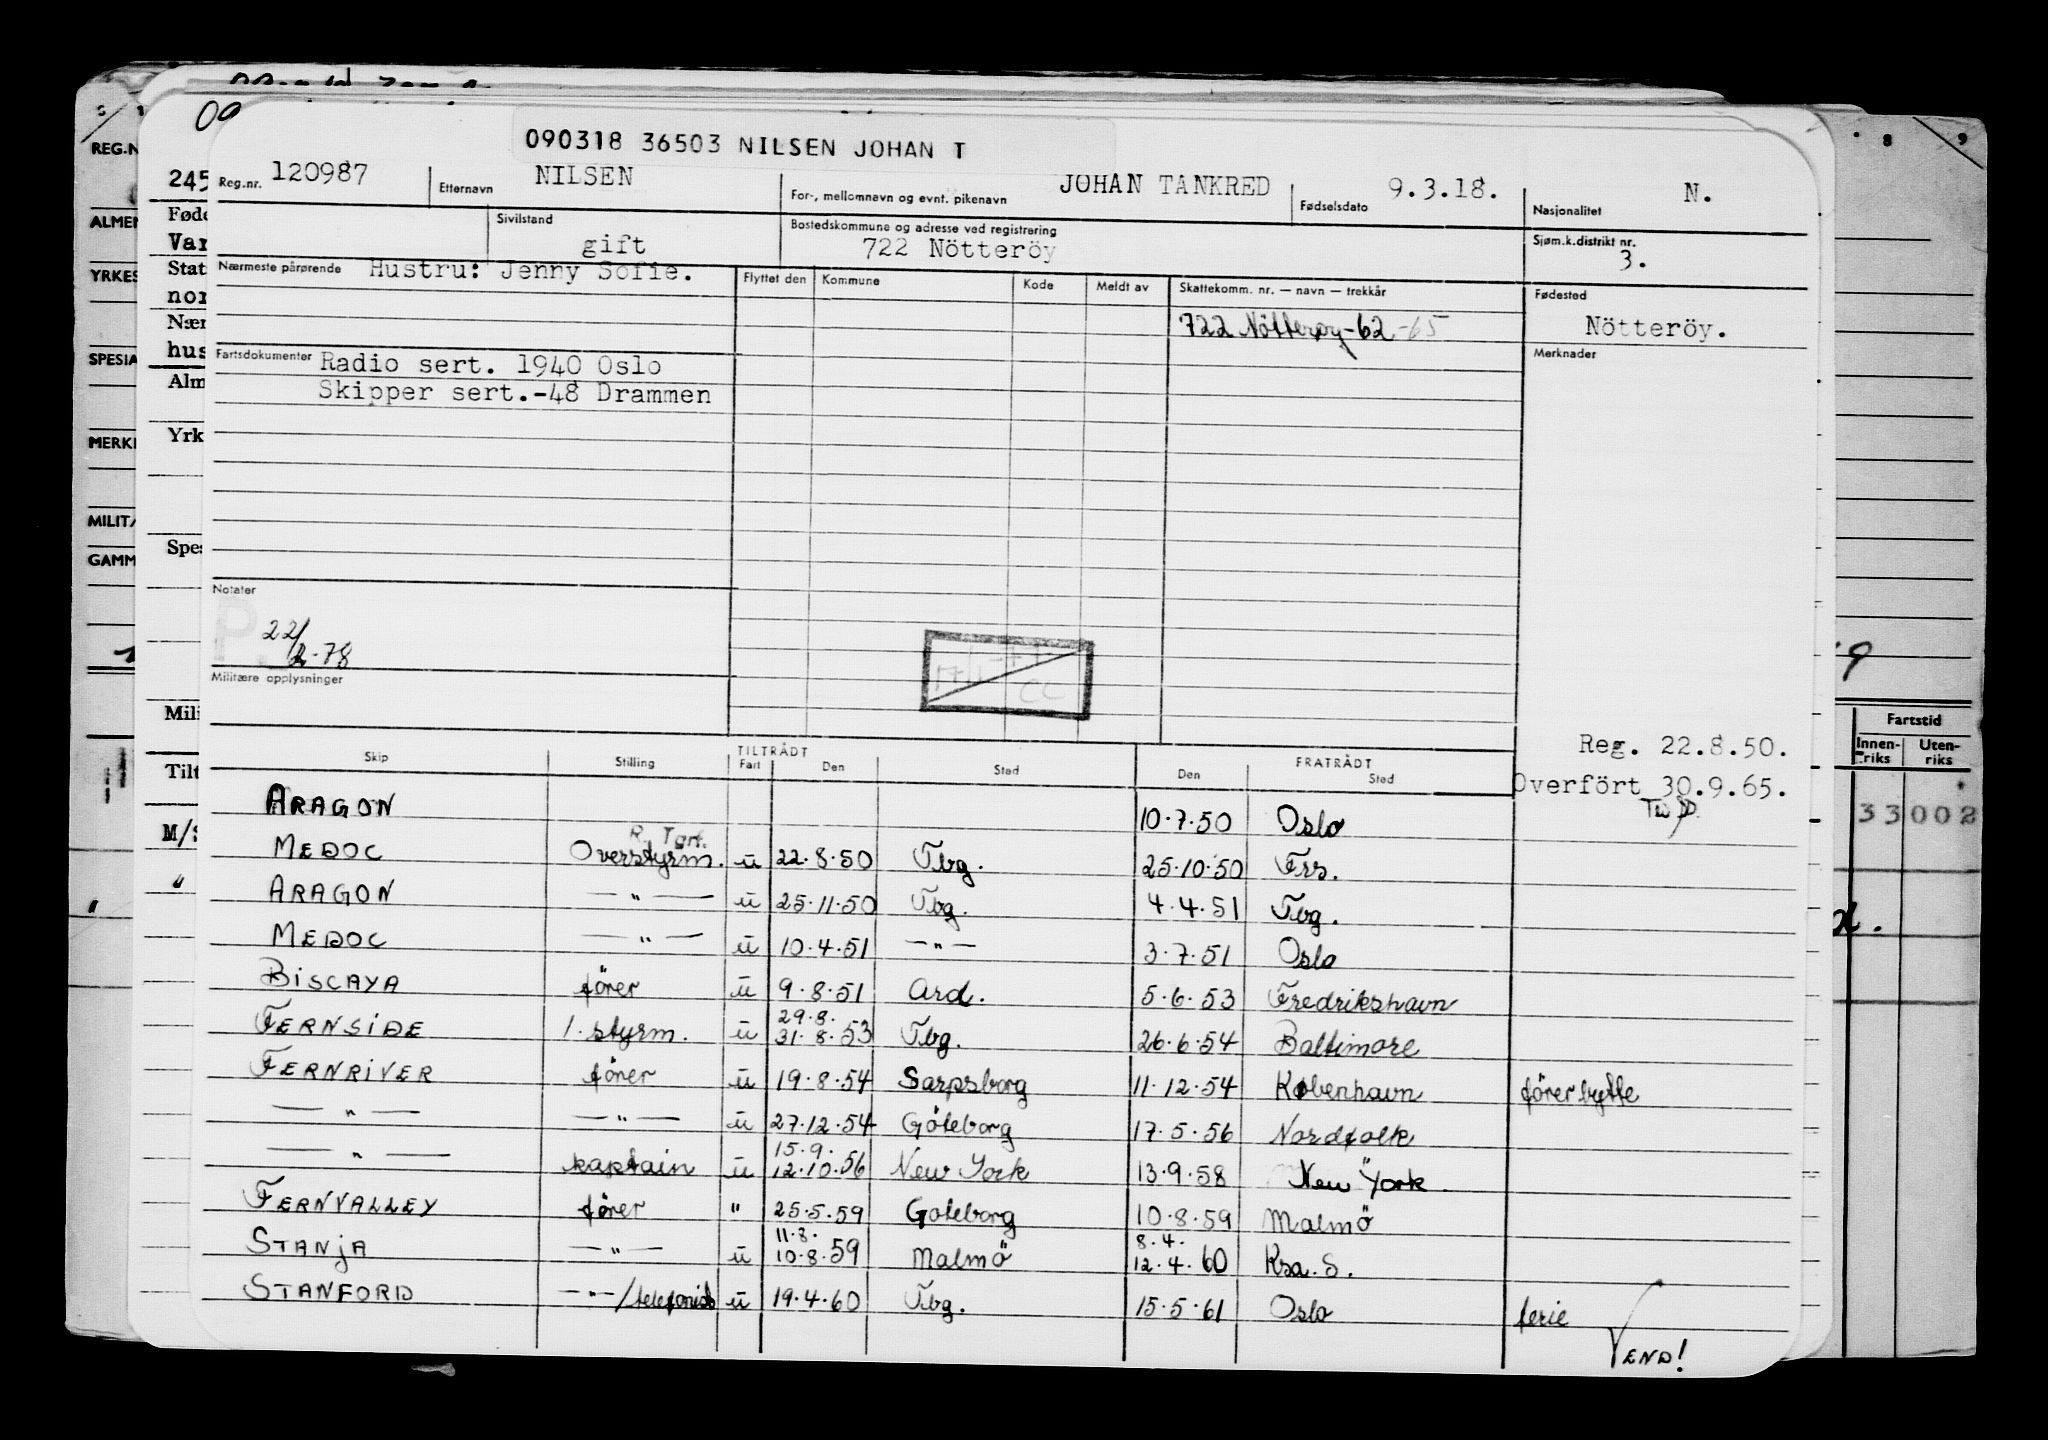 090318 36503 NILSEN JOHAN T
Reg.nr. 120987 Etternavn NILSEN For-, mellomnavn og evnt. pikenavn JOHAN TANKRED Fødselsdato 9.3.18. Nasjonalitet N.
Sivilstand gift Bostedskommune og adresse ved registrering 722 Nötteröy Sjøm.k.distrikt nr. 3.
Nærmeste pårørende Hustru: Jenny Sofie. Flyttet den Kommune Kode Meldt av Skattekomm. nr. — navn — trekkår Fødested
722 Nötterøy-62-65 Nötteröy.
Fartsdokumenter Radio sert. 1940 Oslo Merknader
Skipper sert.-48 Drammen
Notater
22/2-78
Militære opplysninger
Reg. 22.8.50.
Overfört 30.9.65.
Skip Stilling TILTRÅDT Fart Den Sted FRATRÅDT Den Sted
ARAGON 10.7.50 Oslo
MEDOC Overstyrm. u 22.8.50 Tbg. 25.10.50 Frs.
ARAGON —"— u 25.11.50 Tbg. 4.4.51 Tbg.
MEDOC —"— u 10.4.51 —"— 3.7.51 Oslo
BISCAYA förer u 9.8.51 Ard. 5.6.53 Fredrikshavn
29.8.
FERNSIDE 1. styrm. u 31.8.53 Tbg. 26.6.54 Baltimore
FERNRIVER förer u 19.8.54 Sarpsborg 11.12.54 København förerbytte
—"— —"— u 27.12.54 Göteborg 17.5.56 Nordfolk
15.9.
—"— kaptain u 12.10.56 New York 13.9.58 New York
FERNVALLEY förer " 25.5.59 Goteborg 10.8.59 Malmö
11.8. 8.4.
STANJA —"— u 10.8.59 Malmö 12.4.60 Krsa. S.
STANFORD —"—/telefonist u 19.4.60 Tbg. 15.5.61 Oslo ferie
VEND!
REG.N
ALMEN
YRKES
SPESIA
MERKN
MILITÆ
GAMM
245
Føde
Var
Stat
nor
Nær
hus
Alm
Yrk
Spes
Mili
Tilt
M/S
8 9
Fartstid
Innenriks Utenriks
33 002